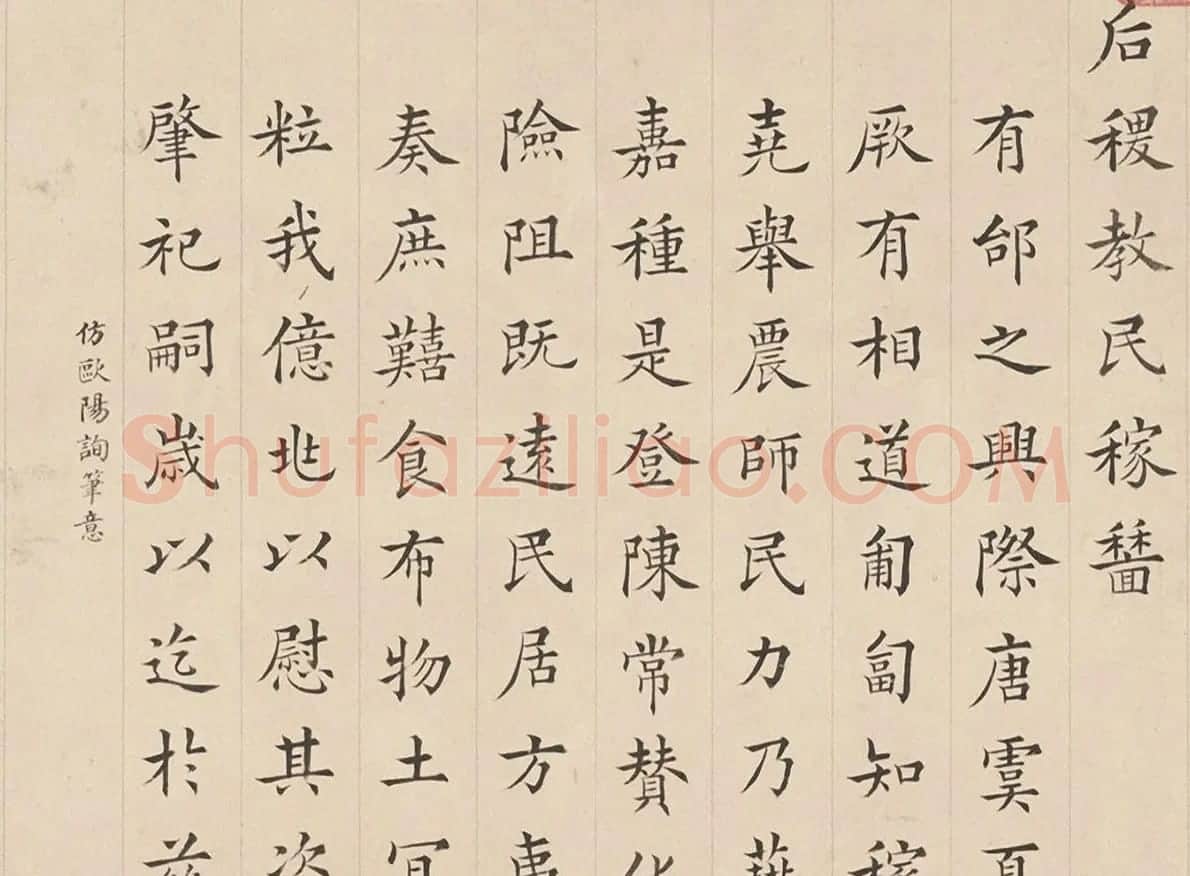 后稷教民稼穡
有邰之興際唐虞
厥有相道匍匐知稼
堯舉農師民力乃
嘉種是登陳常贊
險阻既遠民居方
奏庶囏食布物土
粒我億兆以慰其
肇祀嗣歲以迄於
仿歐陽詢筆意
Shufaziliao.COM